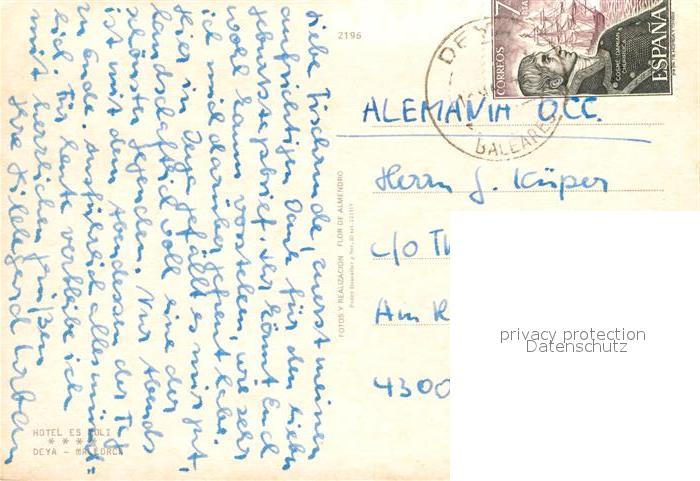 Liebe Tischrunde, zuerst meinen
aufrichtigen Dank für den lieben
Geburtstagsbrief. Ihr könnt Euch
wohl kaum vorstellen, wie sehr
ich mich darüber gefreut habe.
Hier in Deya gefällt es mir gut,
landschaftlich wohl eine der
schönsten Gegenden. Nur Abends
ist mit dem Abendessen der Tag
zu Ende. Ausführlich alles münd=
lich. Für heute verbleibe ich
mit herzlichen Grüßen
Ihre Hildegard Urban
HOTEL ES MOLI
* * * *
DEYA - MALLORCA
2196
FOTOS Y REALIZACION FLOR DE ALMENDRO
CORREOS
7
ESPAÑA
COSME DAMIAN CHURRUCA
DEYA
BALEARES
ALEMANIA OCC.
Herrn G. Küper
c/o Th
Am R
4300
privacy protection
Datenschutz